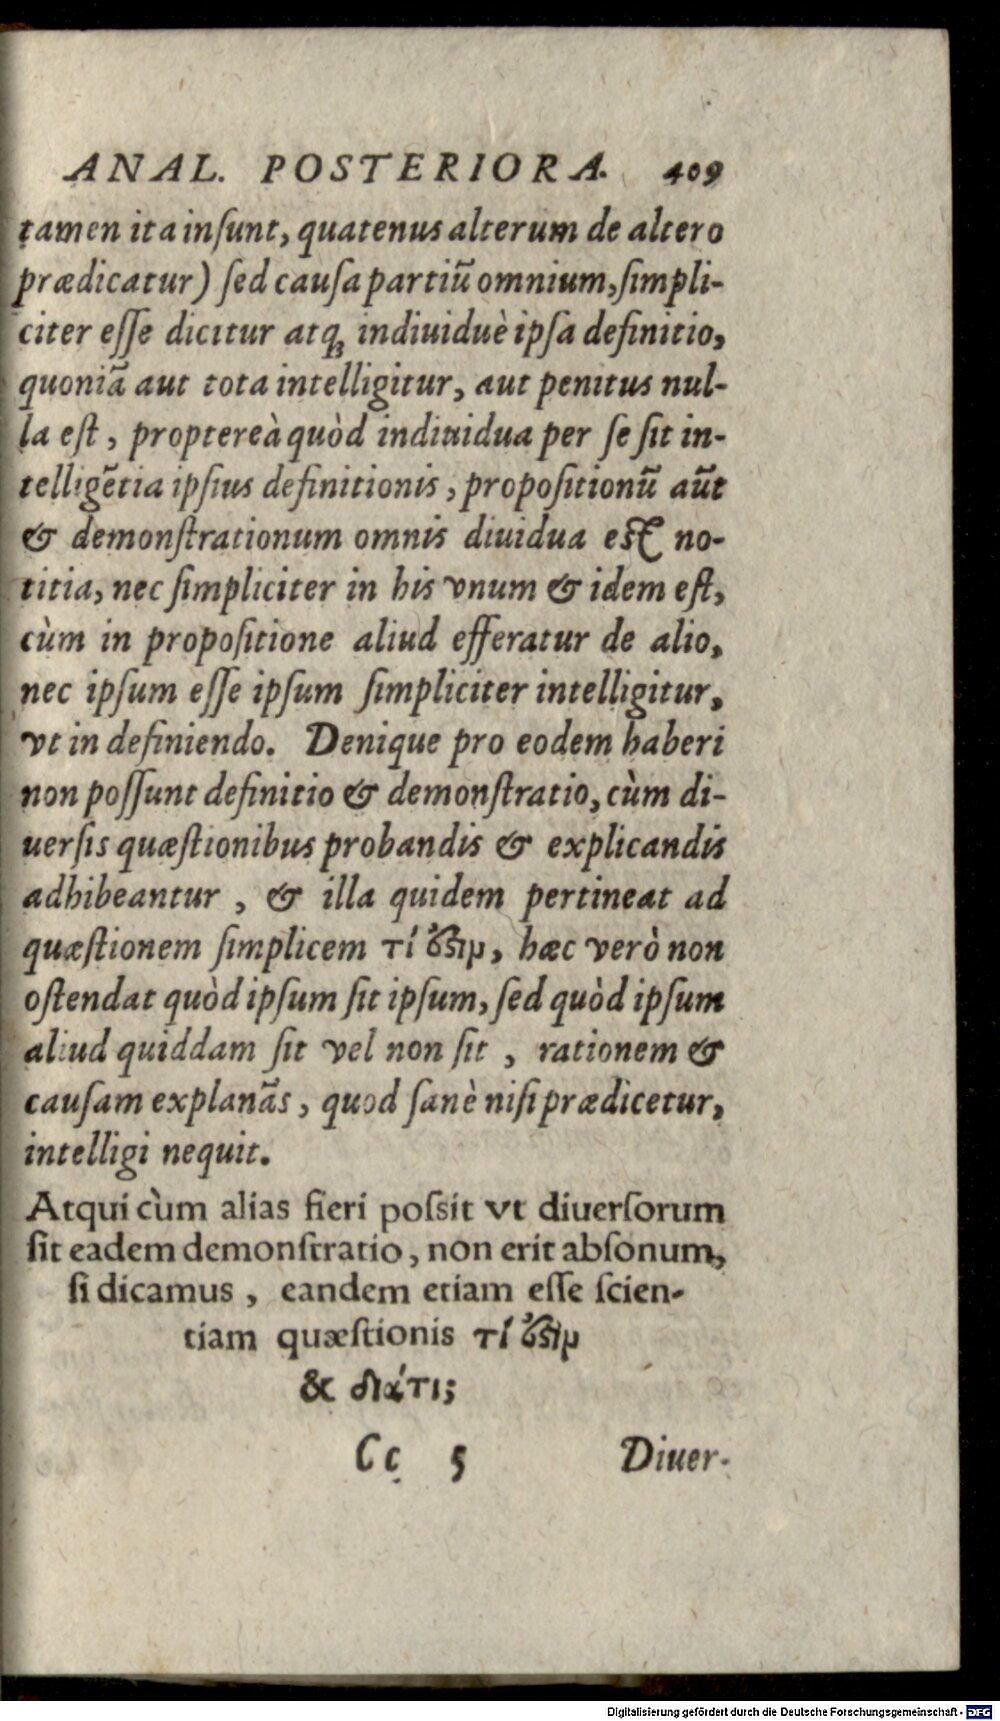 ANAL. POSTERIORA. 409
tamen ita inſunt, quatenus alterum de altero
prædicatur) ſed cauſa partiũ omnium, ſimpli-
citer eſſe dicitur atqꝫ indiuiduè ipſa definitio,
quoniã aut tota intelligitur, aut penitus nul-
la eſt, propterеà quòd indiuidua per ſe ſit in-
telligẽtia ipſius definitionis, propoſitionũ aũt
& demonſtrationum omnis diuidua eſt no-
titia, nec ſimpliciter in his vnum & idem eſt,
cùm in propoſitione aliud efferatur de alio,
nec ipſum eſſe ipſum ſimpliciter intelligitur,
vt in definiendo. Denique pro eodem haberi
non poſſunt definitio & demonſtratio, cùm di-
uerſis quæſtionibus probandis & explicandis
adhibeantur, & illa quidem pertineat ad
quæſtionem ſimplicem τί ὅζιμ, hæc verò non
oſtendat quòd ipſum ſit ipſum, ſed quòd ipſum
aliud quiddam ſit vel non ſit, rationem &
cauſam explanãs, quod ſanè niſi prædicetur,
intelligi nequit.
Atqui cùm alias fieri poſsit vt diuerſorum
ſit eadem demonſtratio, non erit abſonum,
ſi dicamus, eandem etiam eſſe ſcien-
tiam quæſtionis τί ὅζιμ
& διάτι;
Cc 5 Diuer-
Digitalisierung gefördert durch die Deutsche Forschungsgemeinschaft - DFG